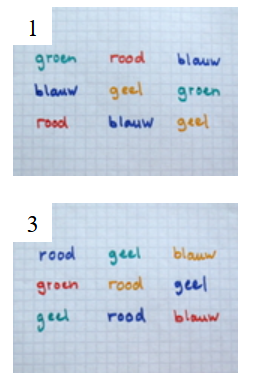 1
groen rood blauw
blauw geel groen
rood blauw geel
3
rood geel blauw
groen rood geel
geel rood blauw